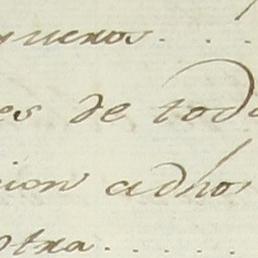 queros . . .
es de toda
cion adhos
otra . . . . .